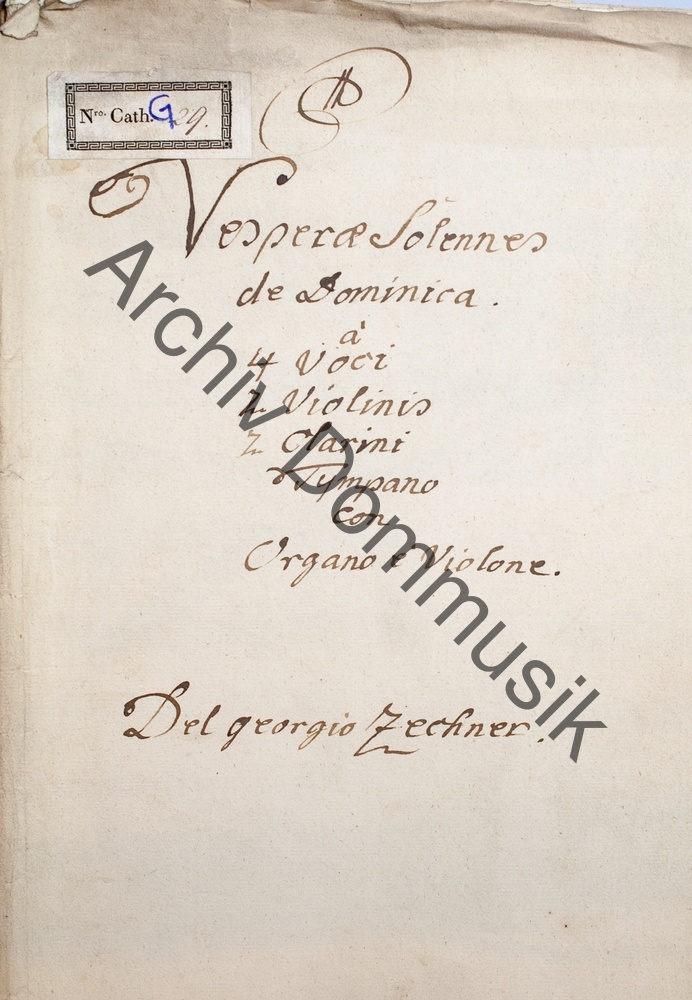 Nro. Cath. G 29.
Vesperæ Solennes
de Dominica.
à
4 Voci
2 Violinis
2 Clarini
Tympano
con
Organo e Violone.
Del georgio Zechner.
Archiv Dommusik